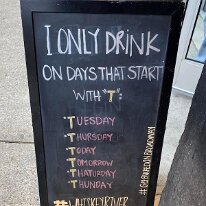 I ONLY DRINK
ON DAYS THAT START
WITH "T":
TUESDAY
THURSDAY
TODAY
TOMORROW
THATURDAY
THUNDAY
#WHISKEYRIVER